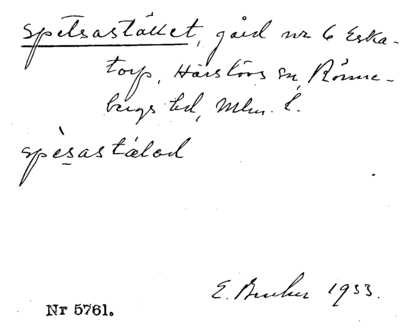 spetsastället, gård nr 6 Eska-
torp, Härslövs sn, Rönne-
bergs hd, Mlm. l.
spèsastälad
E. 1933.
Nr 5761.